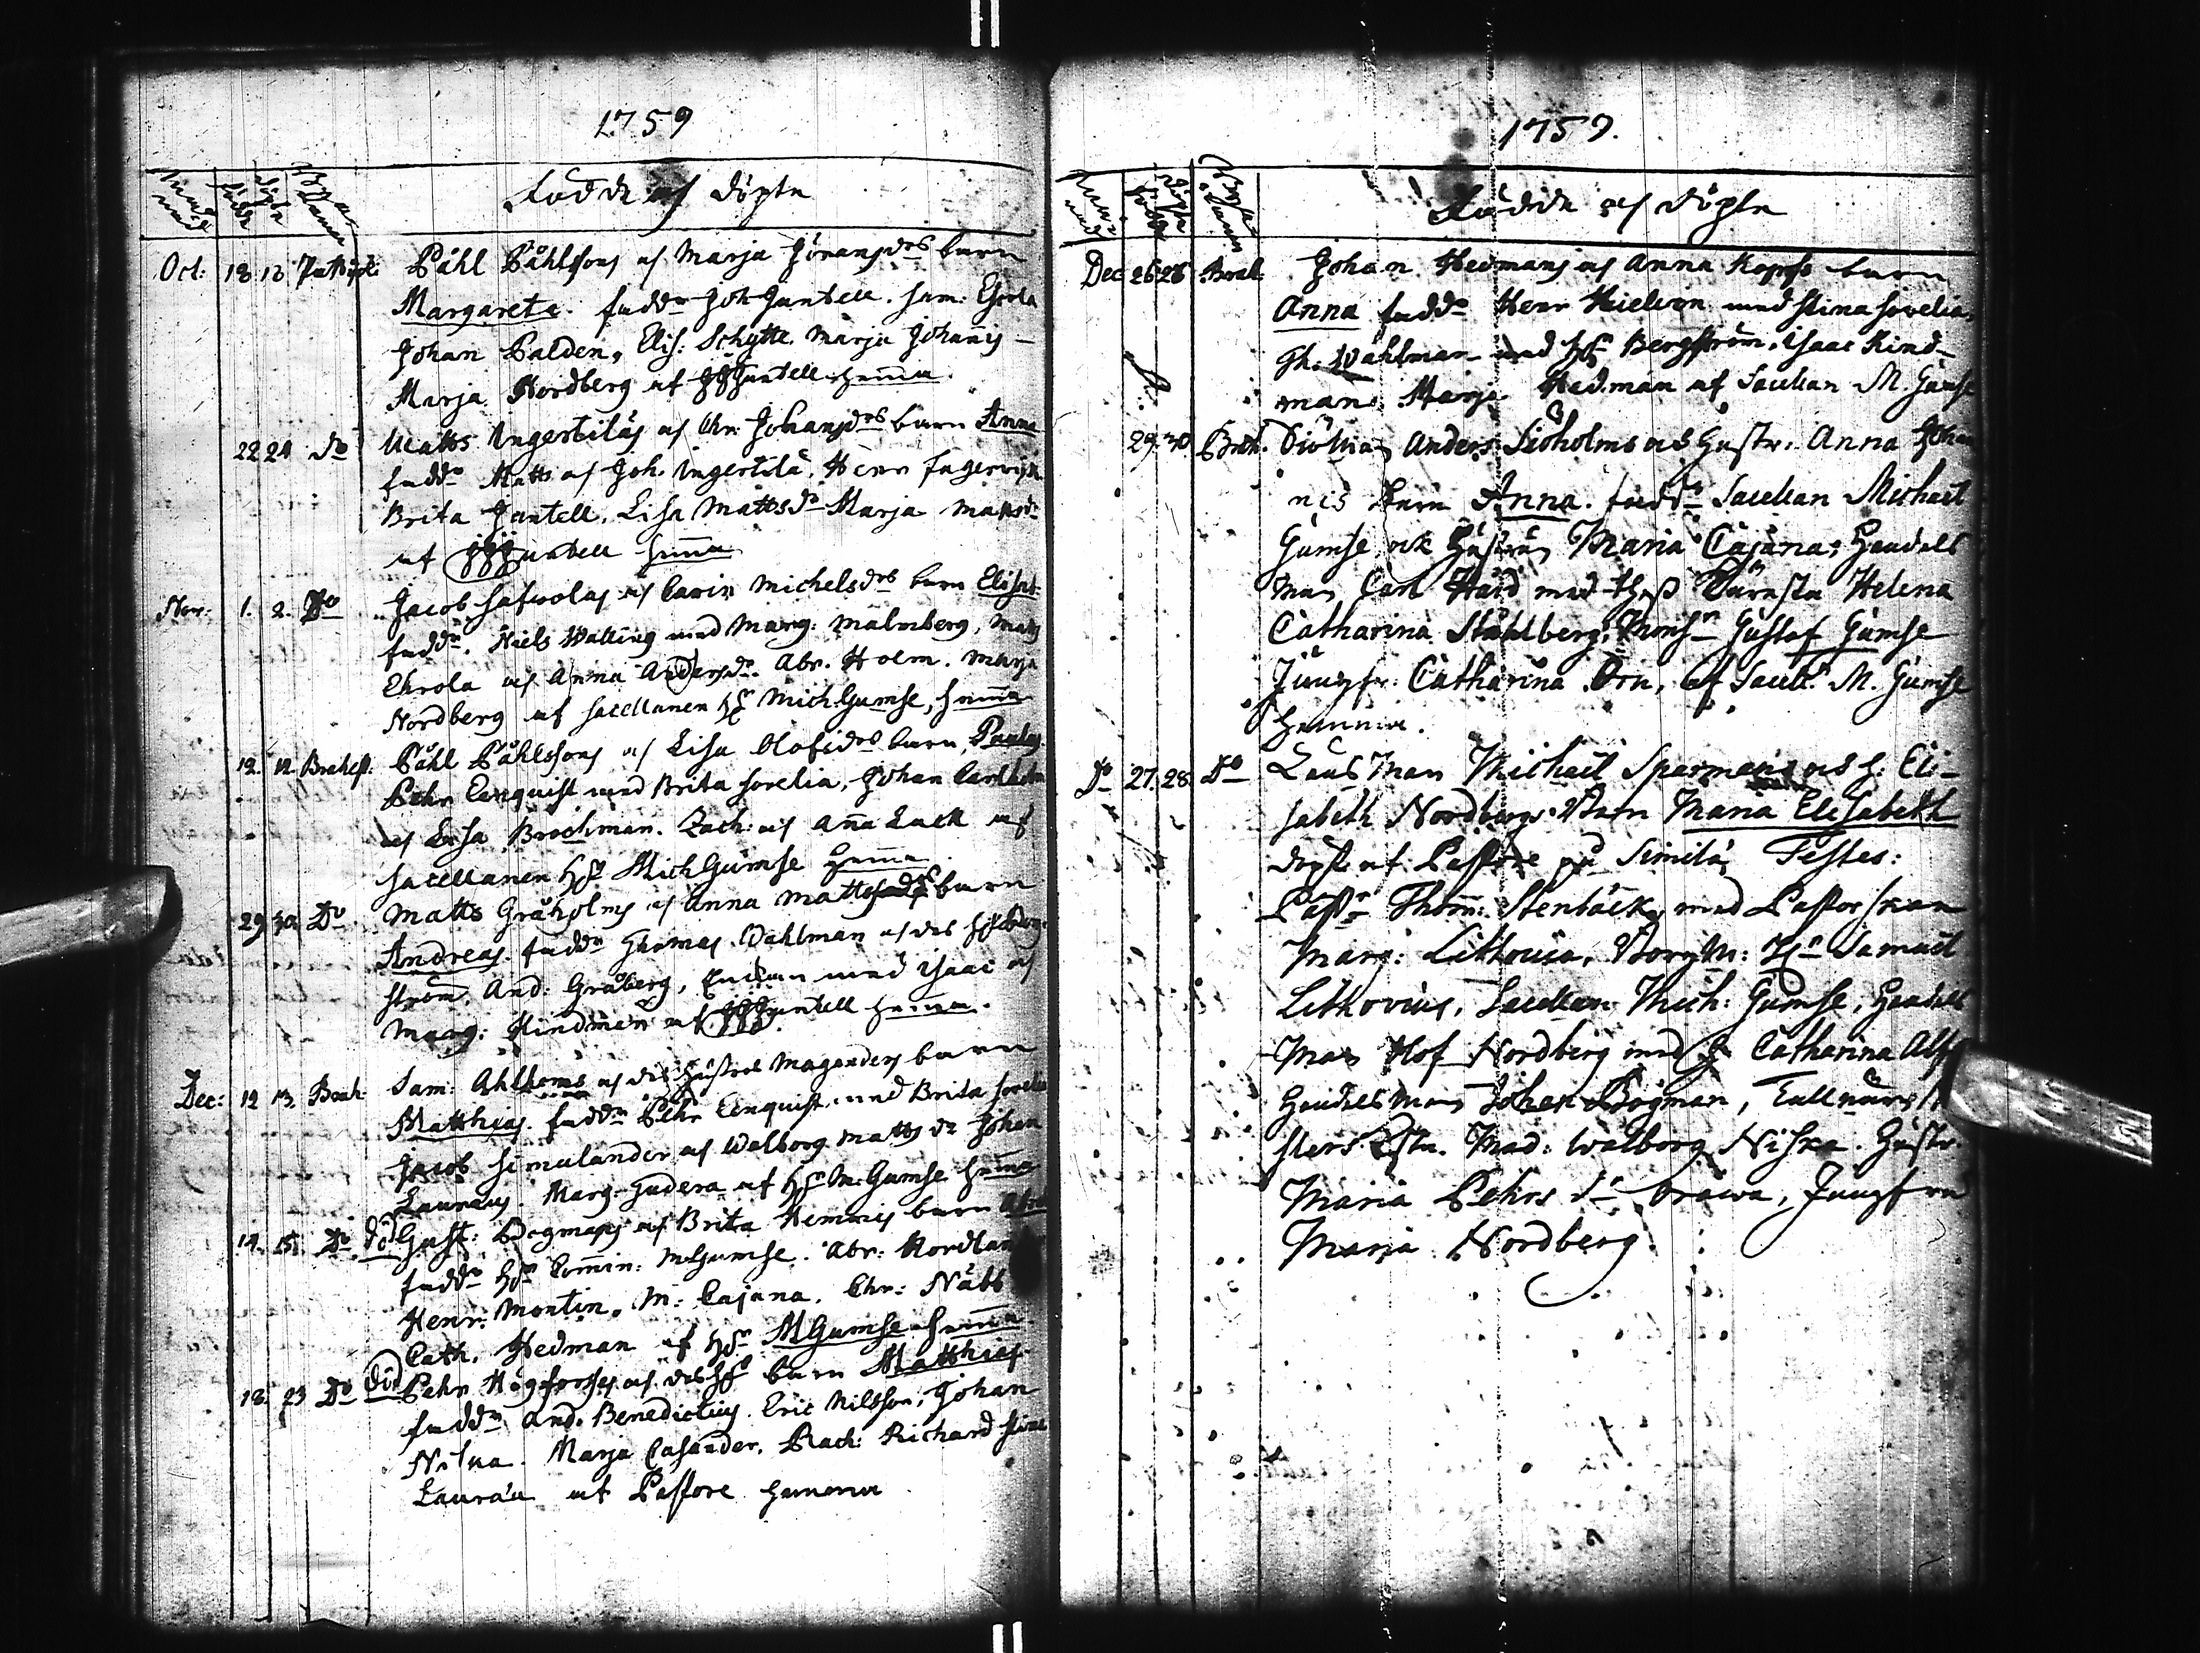 1759
Födde och döpte
Oct: 18. 18 Pålh Påhlsons och Marja Göransdrs barn
Margareta. fadd: Joh Gantell. Sam: Ehrola
Johan Palden, Elis: Schytte. Marja Johanis
Marja Nordberg af Gantell hemma.
22 24 do Matts Ingertiläs och Chr: Johansdrs barn Anna
fadd: Matts och Joh. Ingertilä, Henr Fagervijk
Brita Gantell, Lisa Mattsdr Marja Matsdr
af Gantell hemma
Nov: 1. 2. Do Jacob och Carin Michelsdrs barn Elisab:
fadd: Niels Walling med Marg: Malmberg, Matts
Ehrola och Anna Andersdr. Abr. Holm. Marja
Nordberg af Sacellanen Hr Mich Gumse, hemma
12. 12 Brahest: Påhl Påhlssons och Lisa Olofsdrs barn, Paulus
Pehr Eenquist med Brita Forelia, Johan Carlholm
och Lisa Brochman. Zach: och Anna Lack af
Sacellanen Hr Mich Gumse hemma
29 30. Do Matts Gråholms och Anna Mattsdrs barn
Andreas. fadd: Thomas Wahlman och des h: Berg-
ström. And: Gråberg, Enkan med Isaac och
Marg: Kindman af Gantell hemma.
Dec: 12 13. Brah: Sam: Ahlholms och des hustrus Maganders barn
Matthias. fadd: Pehr Eenquist med Brita Forelia
Jacob Simulander och Walborg Mattsdr Johan
Lauraeus. Marg: Judera af Hr M: Gumse hemma
14. 15. Do död Gust: Bogmans och Brita Hemmis barn Abr:
fadd: Hr Comin: M Gumse. Abr: Nordlan
Henr: Montin. M: Cajana. Chr: Näbb
Cath. Hedman af Hr M Gumse hemma
18. 23 Do död Pehr Högforsses och des h: barn Matthias
fadd: And. Benedictius. Eric Nilsson, Johan
Marja Casander. Rach: Richard Stina
Laurāa af Pastore hemma
1759.
Födde och döpte
Dec 26 28 Brah: Johan Hedmans och Anna Kopps barn
Anna fadd: Henr Hielvon med Stina Forelia,
Th: Wahlman med h: Bergström, Isaac Kind-
man Marja Hedman af Sacellan M. Gumse
29. 30 Brah. Anders Siöholms och Hustr. Anna Joha
nis barn Anna. fadd: Sacellan Michael
Gumse och Hustrun Maria Cajana, Handels
Man Carl Hård med thess Käresta Helena
Catharina Ståhlberg, Monsr Gustaf Gumse
Jungfr: Catharina Orn, af Sacell: M. Gumse
hemma.
Do 27. 28. Do Lands Man Michael Spermans och h: Eli-
sabeth Nordbergs Barn Maria Elisabeth
döpt af Pastore på Limila, Testes:
Past: Thom: Stenbäck, med Pastorskan
Marg: Lithovia, Borgm: Hr Samuel
Lithovius, Sacellan: Mich: Gumse, Handels
Man Olof Nordberg med h: Catharina Alf
Handels Man Johan Bogman, Tullnärs
sters Mad: Walborg Niska. Hustr:
Maria Pehrs dr Jungfru
Maria Nordberg.